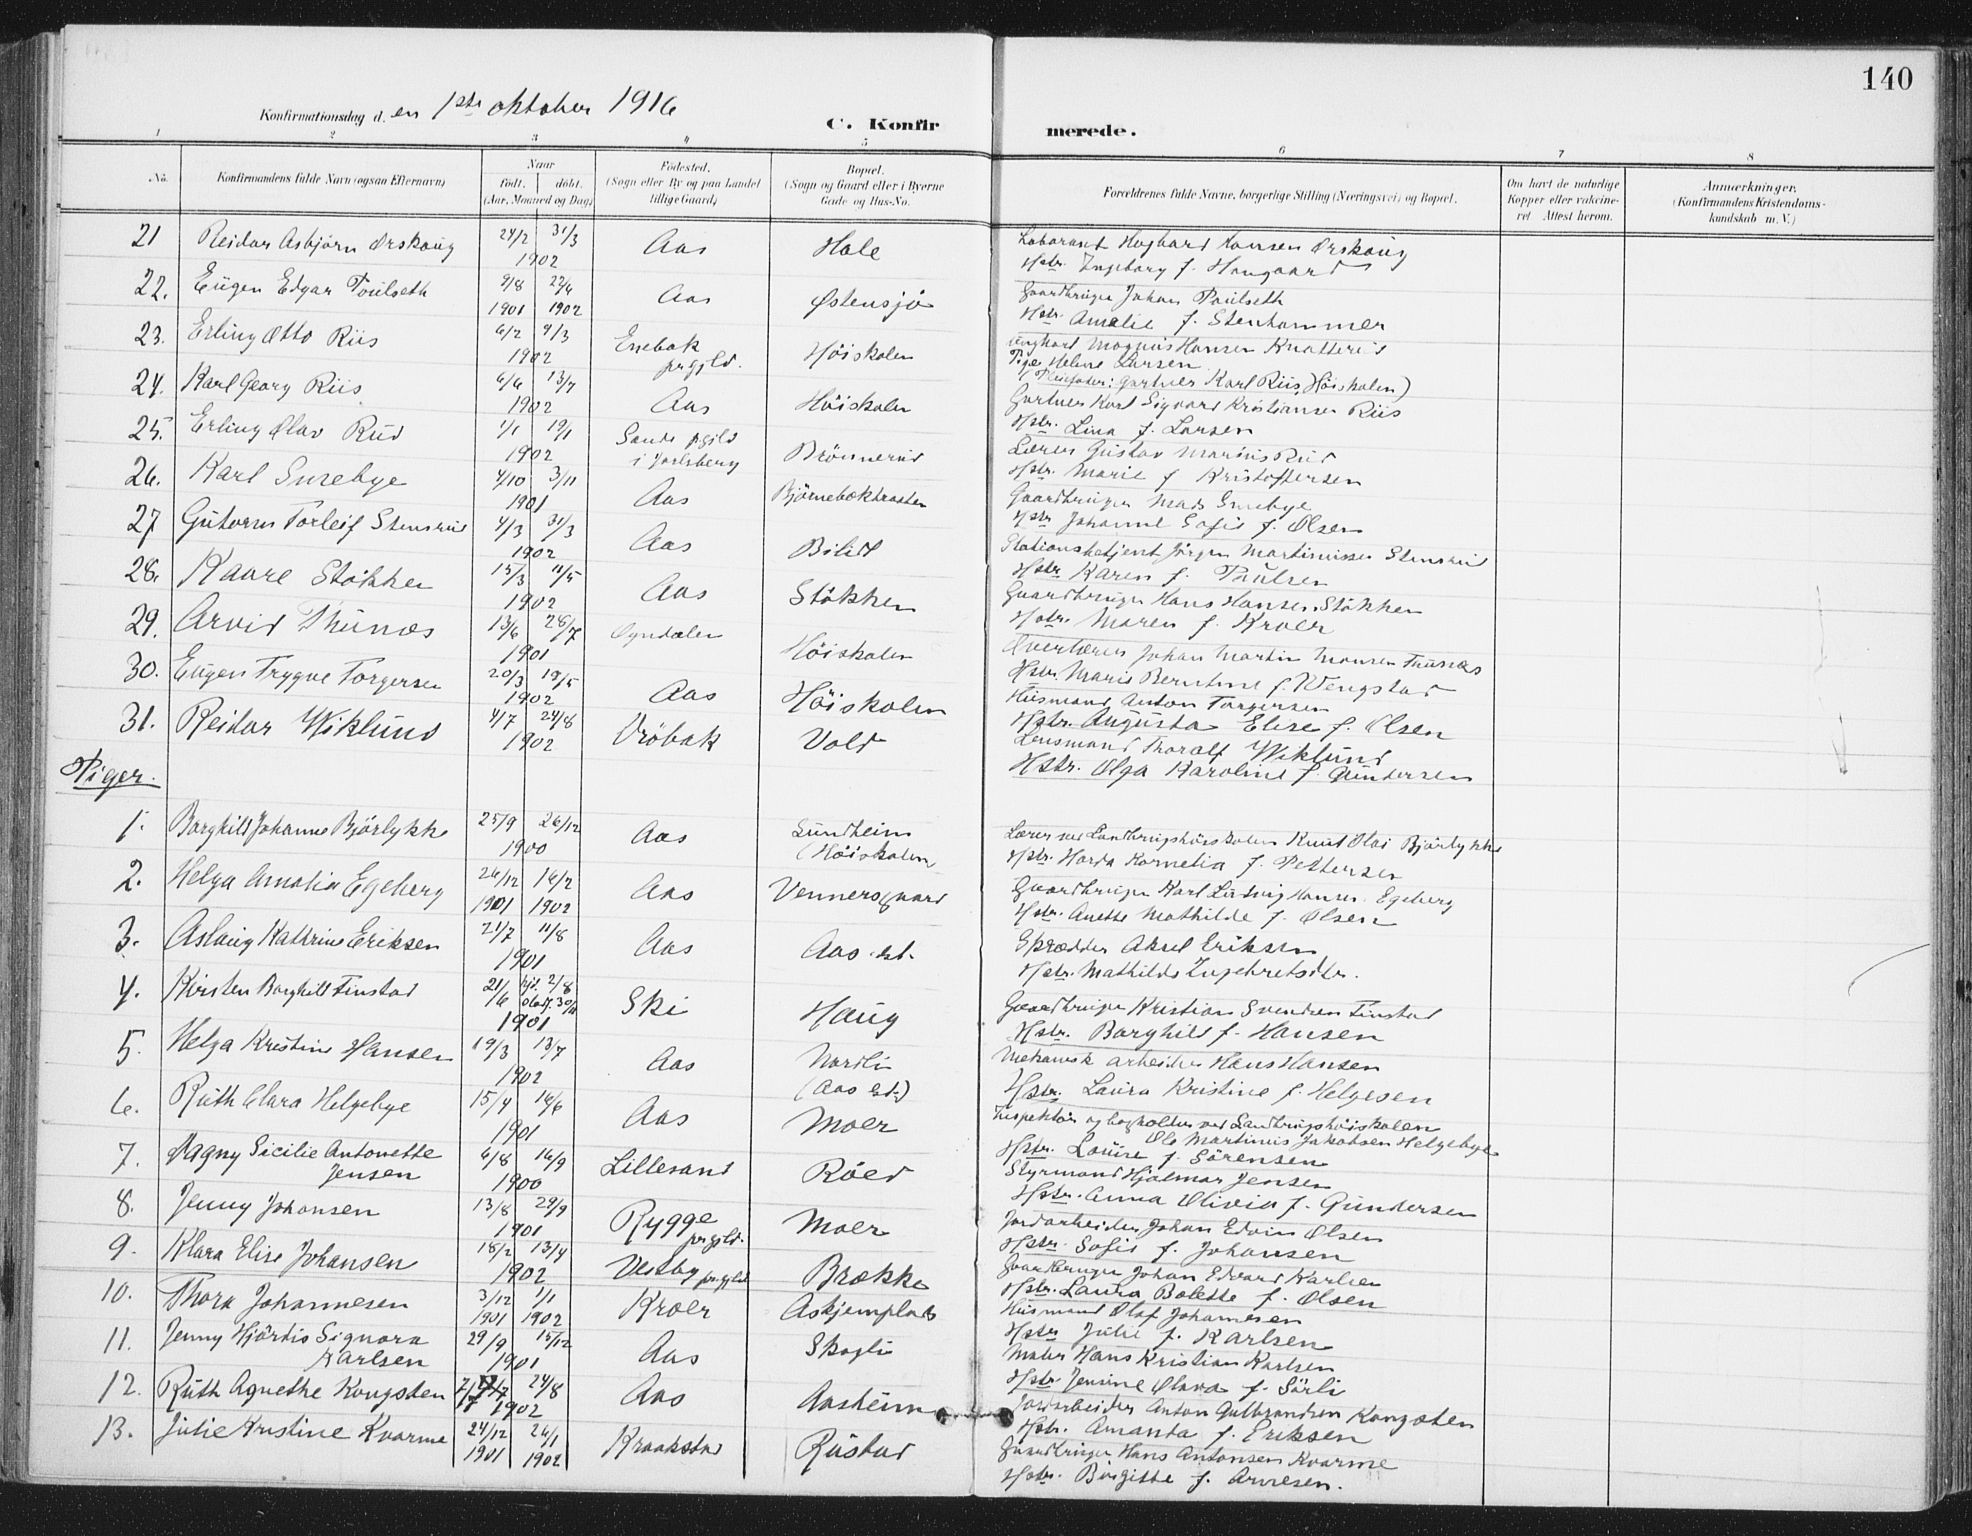 140
Konfirmationsdag d. en 1ste oktober 1916
C. Konfirmerede.
1 2 3 4 5 6 7 8
No. Konfirmandens fulde Navn (ogsaa Efternavn) Naar født. døbt. (Aar, Maaned og Dag) Fødested. (Sogn eller By og paa Landet tillige Gaard) Bopæl. (Sogn og Gaard eller i Byerne Gade og Hus-No. Forældrenes fulde Navne, borgerlige Stilling (Næringsvei) og Bopæl. Om havt de naturlige Kopper eller vaccineret. Attest herom. Anmærkninger. (Konfirmandens Kristendomskundskab m. V.)
21 Reidar Asbjørn Ørskoug 24/2 31/3 1902 Aas Hole Laborant Haghard Hansen Ørskoug
Hstr. Ingeborg f. Haugaard
22. Eugen Edgar Poulseth 9/8 1901 22/4 1902 Aas Østensjø Gaardbruger Johan Paulseth
Hstr. Amalie f. Stenhammer
23. Erling Otto Riis 6/2 9/3 1902 Enebak prgjld. Høiskolen Ungkarl Magnus Hansen Knatterud
Pige Helene Larsen
(Pleiefader: Gartner Karl Riis, Høiskolen)
24. Karl Georg Riis 6/6 13/7 1902 Aas Høiskolen Gartner Karl Sigvard Kristiansen Riis
Hstr. Lina f. Larsen
25. Erling Olav Rud 1/1 19/1 1902 Sande pgjld i Jarlsberg Brønnerud Lærer Gustav Marius Rud
Hstr. Marie f. Kristoffersen
26. Karl Smebye 4/10 3/11 1901 Aas Bjørnebæktrasten Gaardbruger Mads Smebye
Hstr Johanne Sofie f. Olsen
27 Gutorm Torleif Stensrud 4/3 31/3 1902 Aas Bilitt Stationsbetjent Jørgen Martinussen Stensrud
Hstr Karen f. Paulsen
28. Kaare Støkken 15/3 11/5 1902 Aas Støkken Gaardbruger Hans Hansen Støkken
Hstr. Maren f. Kroer
29. Arvid Thunæs 13/6 28/7 1901 Øyndalen Høiskolen Overlærer Johan Martin Monsen Thunæs
Hstr. Marie Berntine f. Wengstad
30. Eugen Trygve Torgersen 20/3 18/5 1902 Aas Høiskolen Husmand Anton Torgersen
Hstr. Augusta Elise f. Olsen
31. Reidar Wiklund 4/7 24/8 1902 Drøbak Vold Lensmand Thoralf Wiklund
Hstr. Olga Karoline f. Gundersen
Piger.
1. Borghild Johanne Bjørlykke 25/9 26/12 1900 Aas Sundheim (Høiskolen) Lærer ved Landbrugshøiskolen Knut Olai Bjørlykke
Hstr. Harda Kornelia f. Pettersen
2. Helga Amalia Egeberg 26/12 1901 16/2 1902 Aas Vennersgaard Gaardbruger Karl Ludvig Hansen Egeberg
Hstr. Anette Mathilde f. Olsen
3. Aslaug Kathrine Eriksen 21/7 11/8 1901 Aas Aas st. Skrædder Aksel Eriksen
Hstr. Mathilde Ingebretsdtr.
4. Kirsten Borghild Finstad 21/6 hjd. 2/8 1901 Ski Haug Gaardbruger Kristian Svendsen Finstad
Hstr. Borghild f. Hansen
5. Helga Kristine Hansen 19/3 13/7 1902 Aas Nordli (Aas st.) Mekanisk arbeider Hans Hansen
Hstr. Laura Kristine f. Helgesen
6. Ruth Clara Helgebye 15/4 16/6 1901 Aas Moer Inspektør og bogholder ved Landbrugshøiskolen
Ole Martinius Jakobsen Helgebye
Hstr. Louise f. Sørensen
7. Dagny Sicilie Antonette Jensen 6/8 16/9 1900 Lillesand Røed Styrmand Hjalmar Jensen
Hstr. Anna Olivia f. Gundersen
8. Jenny Johansen 13/8 29/9 1901 Rygge prgjld. Moer Jordarbeider Johan Edvin Olsen
Hstr. Sofie f. Johansen
9. Klara Elise Johansen 18/2 13/4 1902 Vestby prgjld Brække Gaardbruger Johan Edvard Karlsen
Hstr. Laura Bolette f. Olsen
10. Thora Johannesen 3/12 1901 1/1 1902 Kroer Askjemplads Husmand Olaf Johannesen
Hstr Julie f. Karlsen
11. Jenny Hjørdis Signora Karlsen 29/9 15/12 1901 Aas Skogli Maler Hans Kristian Karlsen
Hstr. Jensine Olava f. Sørli
12. Ruth Agnethe Kongsten 24/8 1902 Aas Aasheim Jordarbeider Anton Gulbrandsen Kongsten
Hstr. Amanda f. Eriksen
13. Julie Kristine Kvarme 24/12 1901 26/1 1902 Kraakstad Rustad Gaardbruger Hans Antonsen Kvarme
Hstr. Birgitte f. Arnesen.